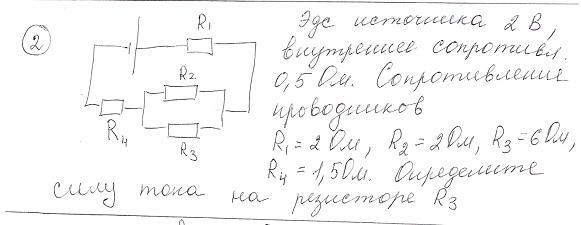 2
R1
Эдс источника 2 В,
внутреннее сопротивл.
R2
0,5 Ом. Сопротивление
проводников
R4
R3
R1 = 2 Ом, R2 = 2 Ом, R3 = 6 Ом,
R4 = 1,5 Ом. Определите
силу тока на резисторе R3